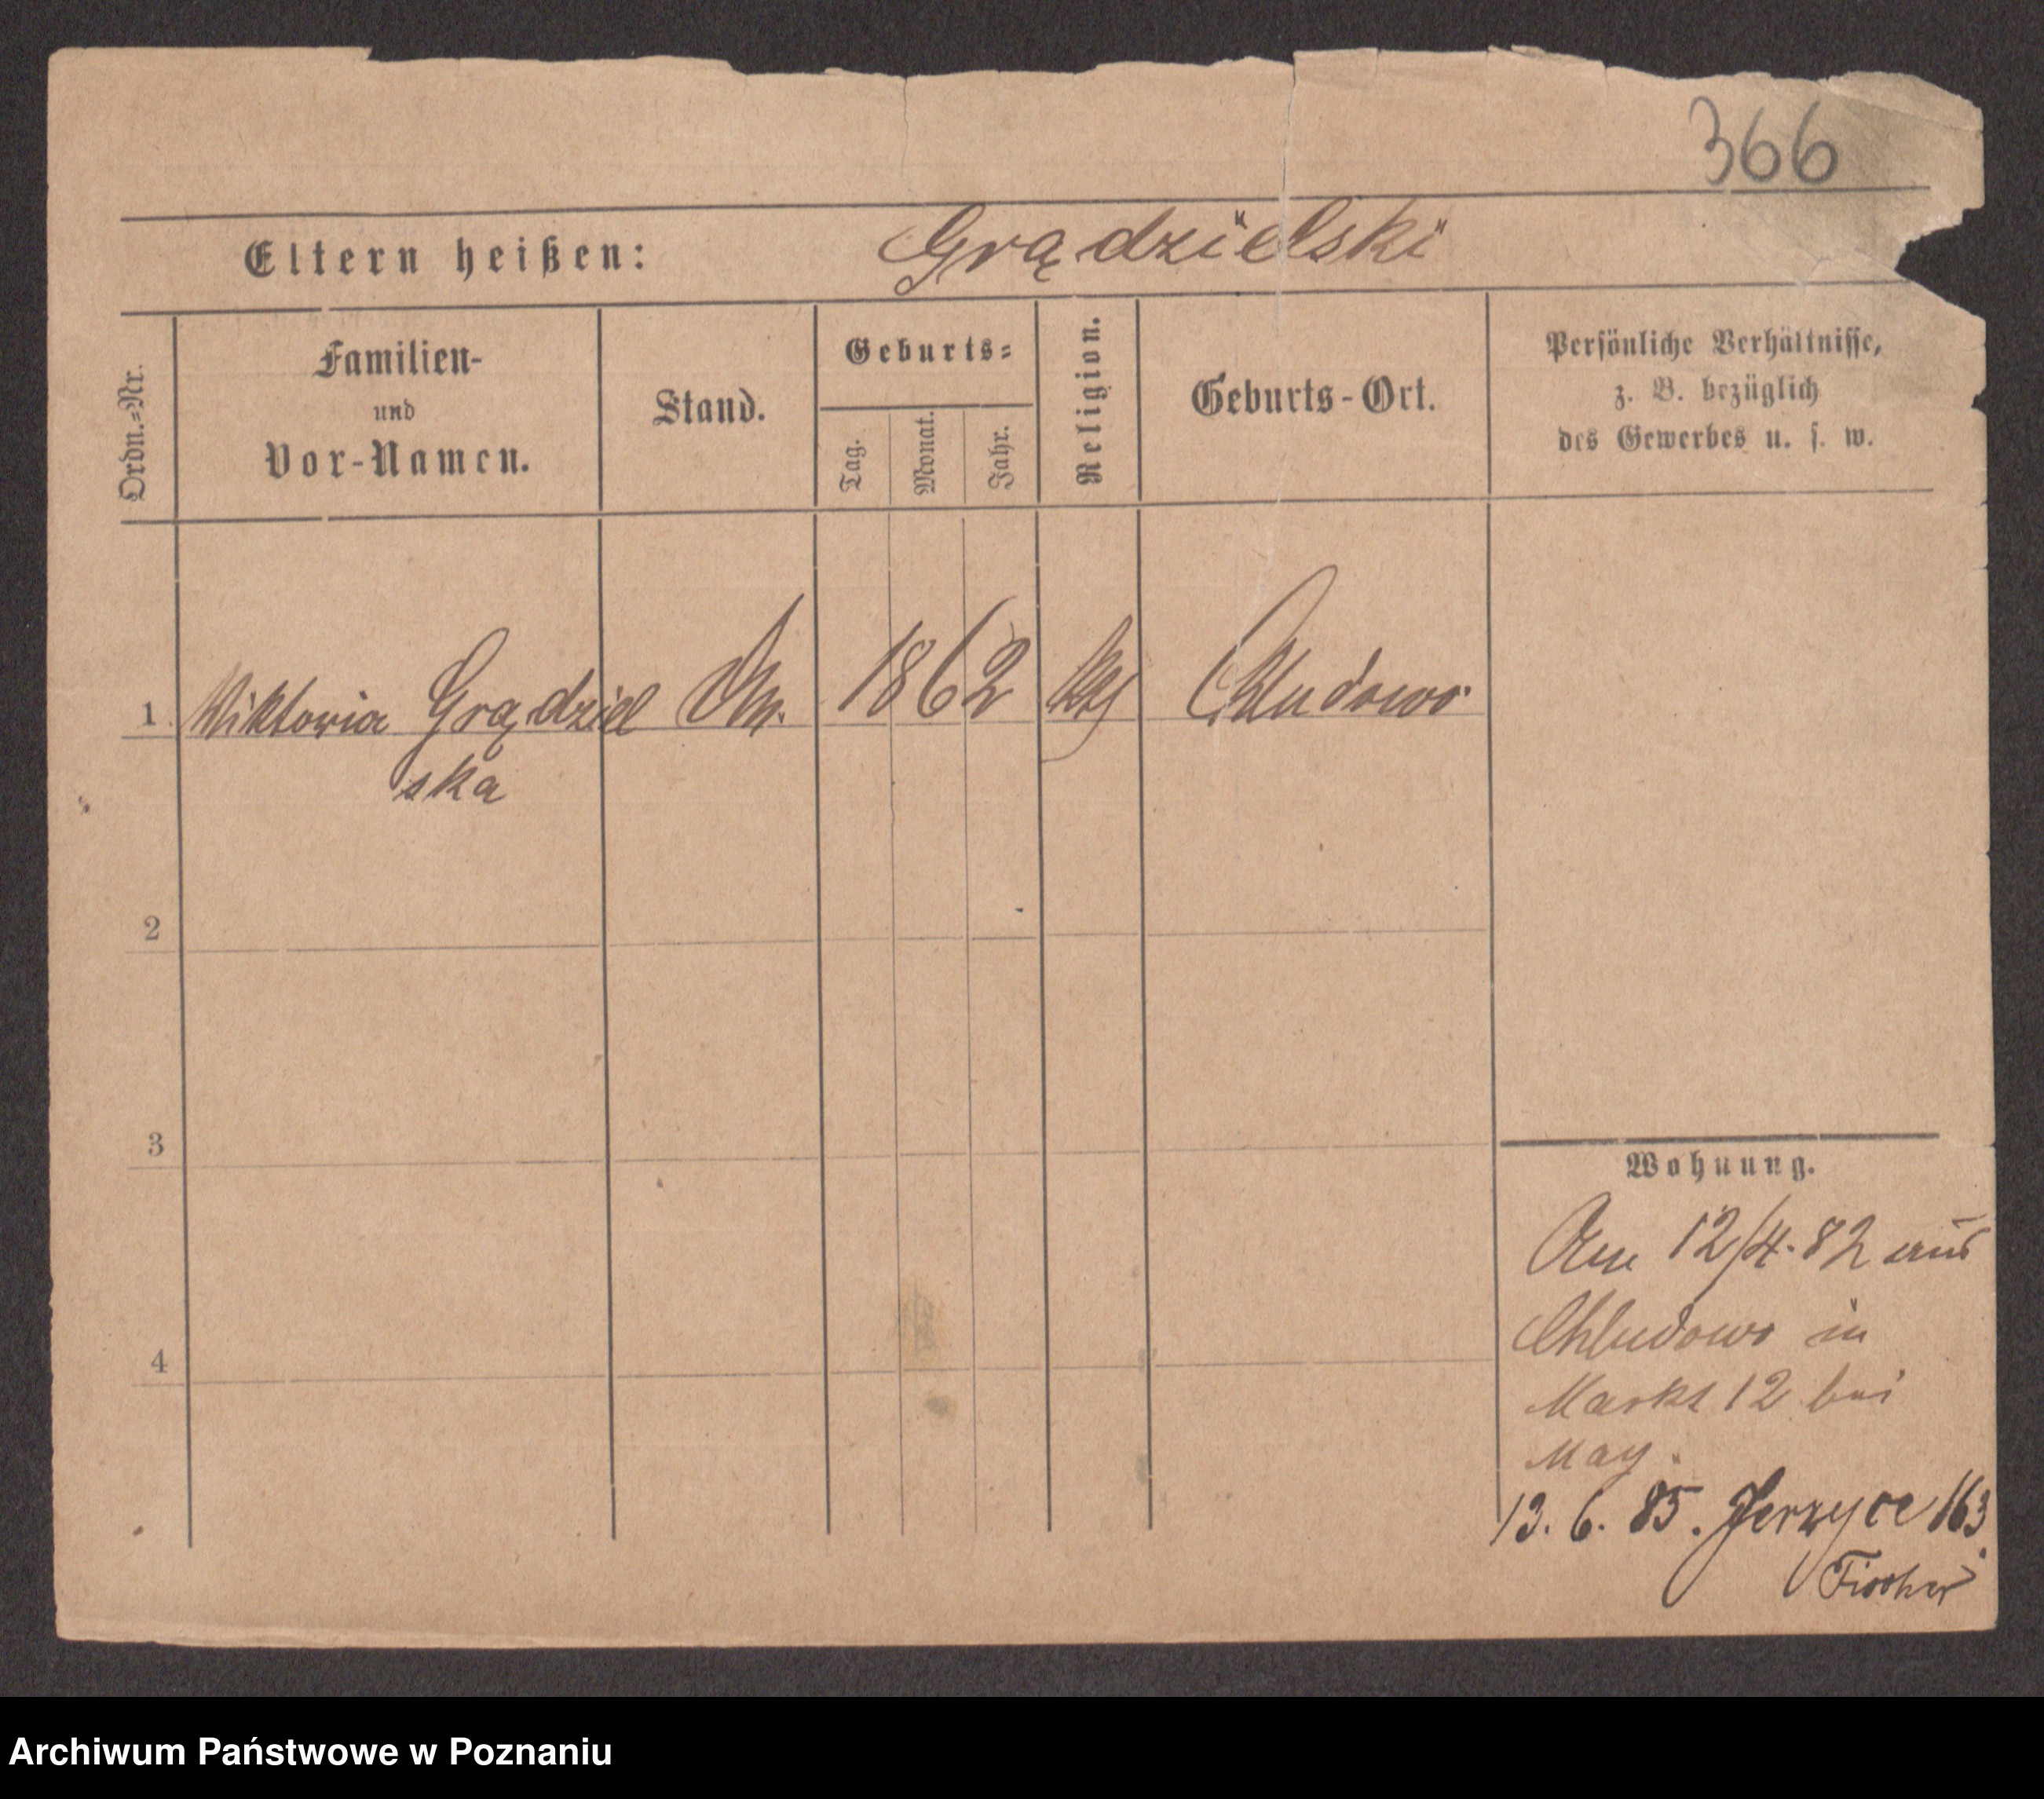 366
Eltern heißen: Grądzielski
Ordn.=Nr.
Familien-
und
Vor-Namen.
Stand.
Geburts=
Tag.
Monat.
Jahr.
Religion.
Geburts-Ort.
Persönliche Verhältnisse,
z. B. bezüglich
des Gewerbes u. s. w.
1 Wiktoria Grądziel 1862 Chludowo
ska
2
3
4
Wohnung.
12/4.82 aus
Chludowo in
Markt 12 bei
May.
13. 6. 85. Jerzyce 163.
Fischer
Archiwum Państwowe w Poznaniu